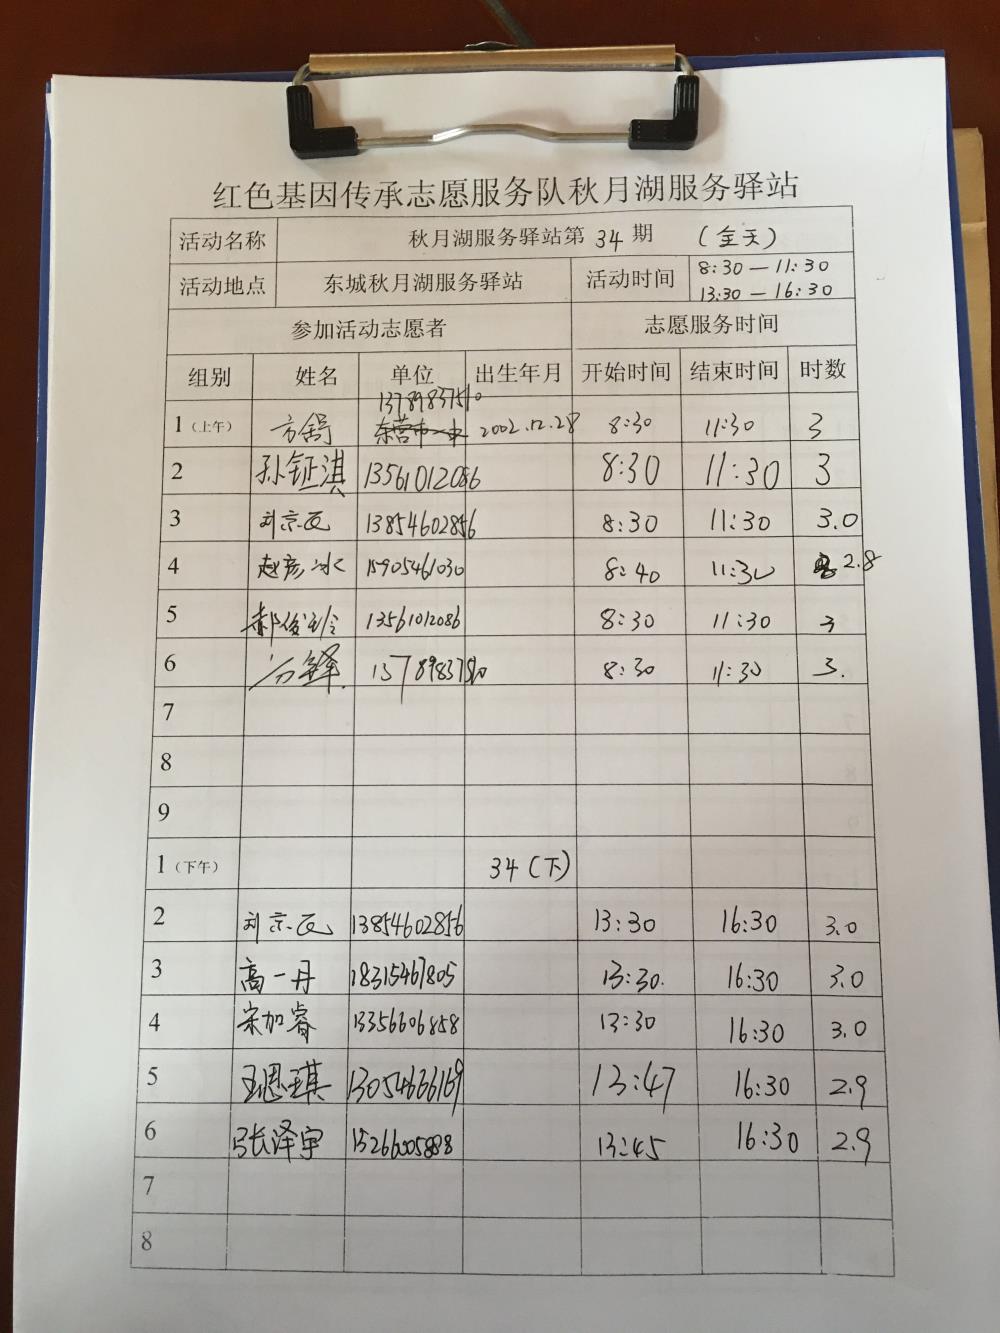 红色基因传承志愿服务队秋月湖服务驿站
活动名称 秋月湖服务驿站第 34 期 （全天）
活动地点 东城秋月湖服务驿站 活动时间 8:30—11:30
13:30—16:30
参加活动志愿者 志愿服务时间
组别 姓名 单位 出生年月 开始时间 结束时间 时数
13789837510
1（上午） 方舒 东营市一中 2002.12.28 8:30 11:30 3
2 孙钲淇 13561012086 8:30 11:30 3
3 刘京 13854602856 8:30 11:30 3.0
4 赵彦冰 15905461030 8:40 11:30 2.8
5 郝俊玲 13561012086 8:30 11:30 3
6 方铎 13789837510 8:30 11:30 3.
7
8
9
1（下午） 34（下）
2 刘京 13854602856 13:30 16:30 3.0
3 高一丹 18315467805 13:30. 16:30 3.0
4 宋加睿 13356606858 13:30 16:30 3.0
5 王思琪 13054666169 13:47 16:30 2.9
6 张泽宇 13:45 16:30 2.9
7
8